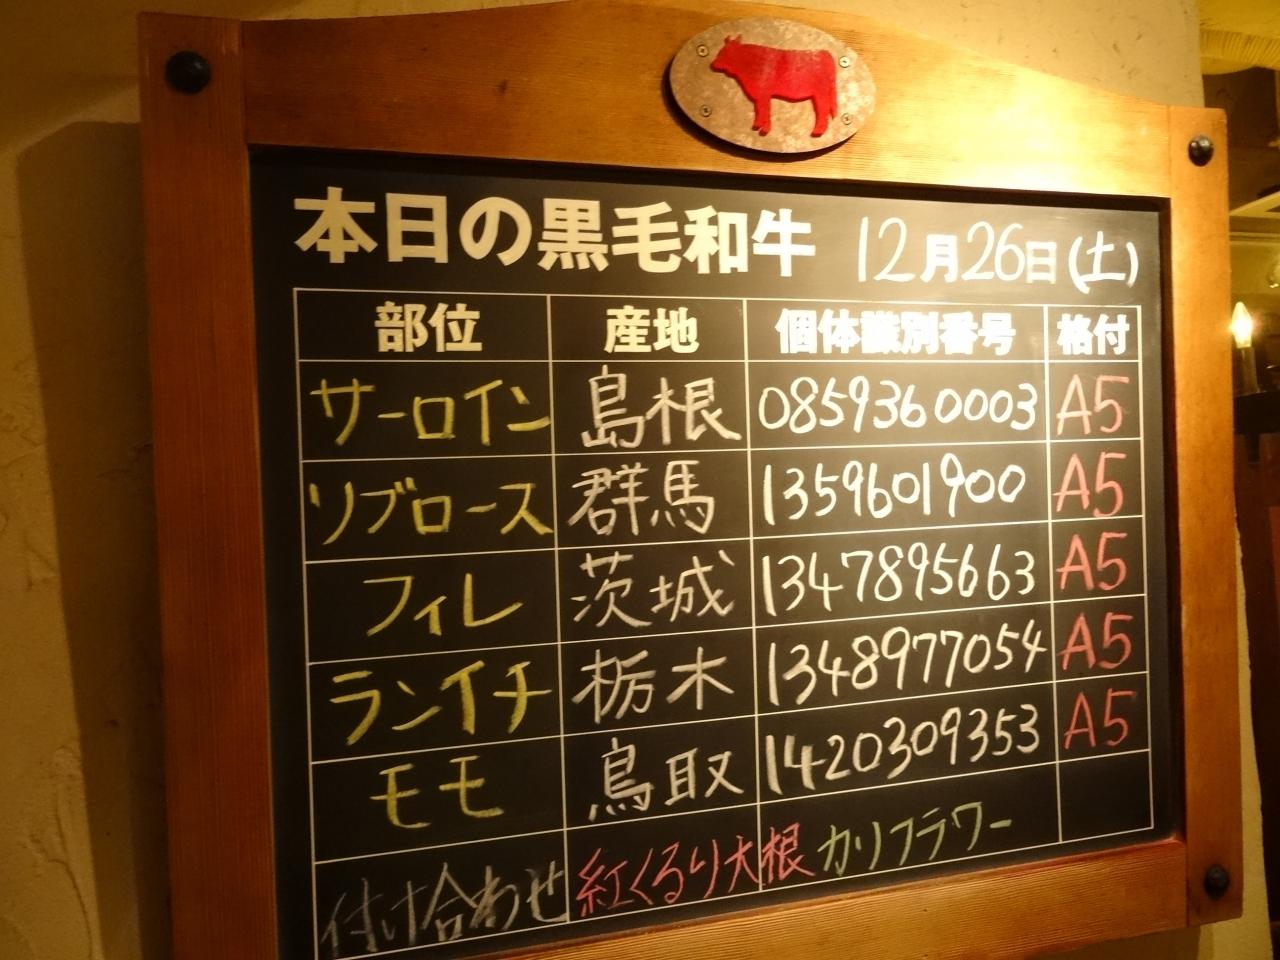 本日の黒毛和牛 12月26日(土)
部位 産地 個体識別番号 格付
サーロイン 島根 0859360003 A5
リブロース 群馬 1359601900 A5
フィレ 茨城 1347895663 A5
ランイチ 栃木 1348977054 A5
モモ 鳥取 1420309353 A5
付け合わせ 紅くるり大根 カリフラワー